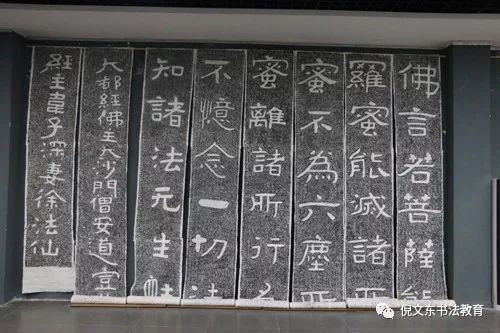 佛言若菩薩能
羅蜜能滅諸
蜜不為六塵
蜜離諸所行
不憶念一切法
知諸法元生
大都經佛主大沙門僧安道壹
經主韋子深妻徐法仙
倪文东书法教育